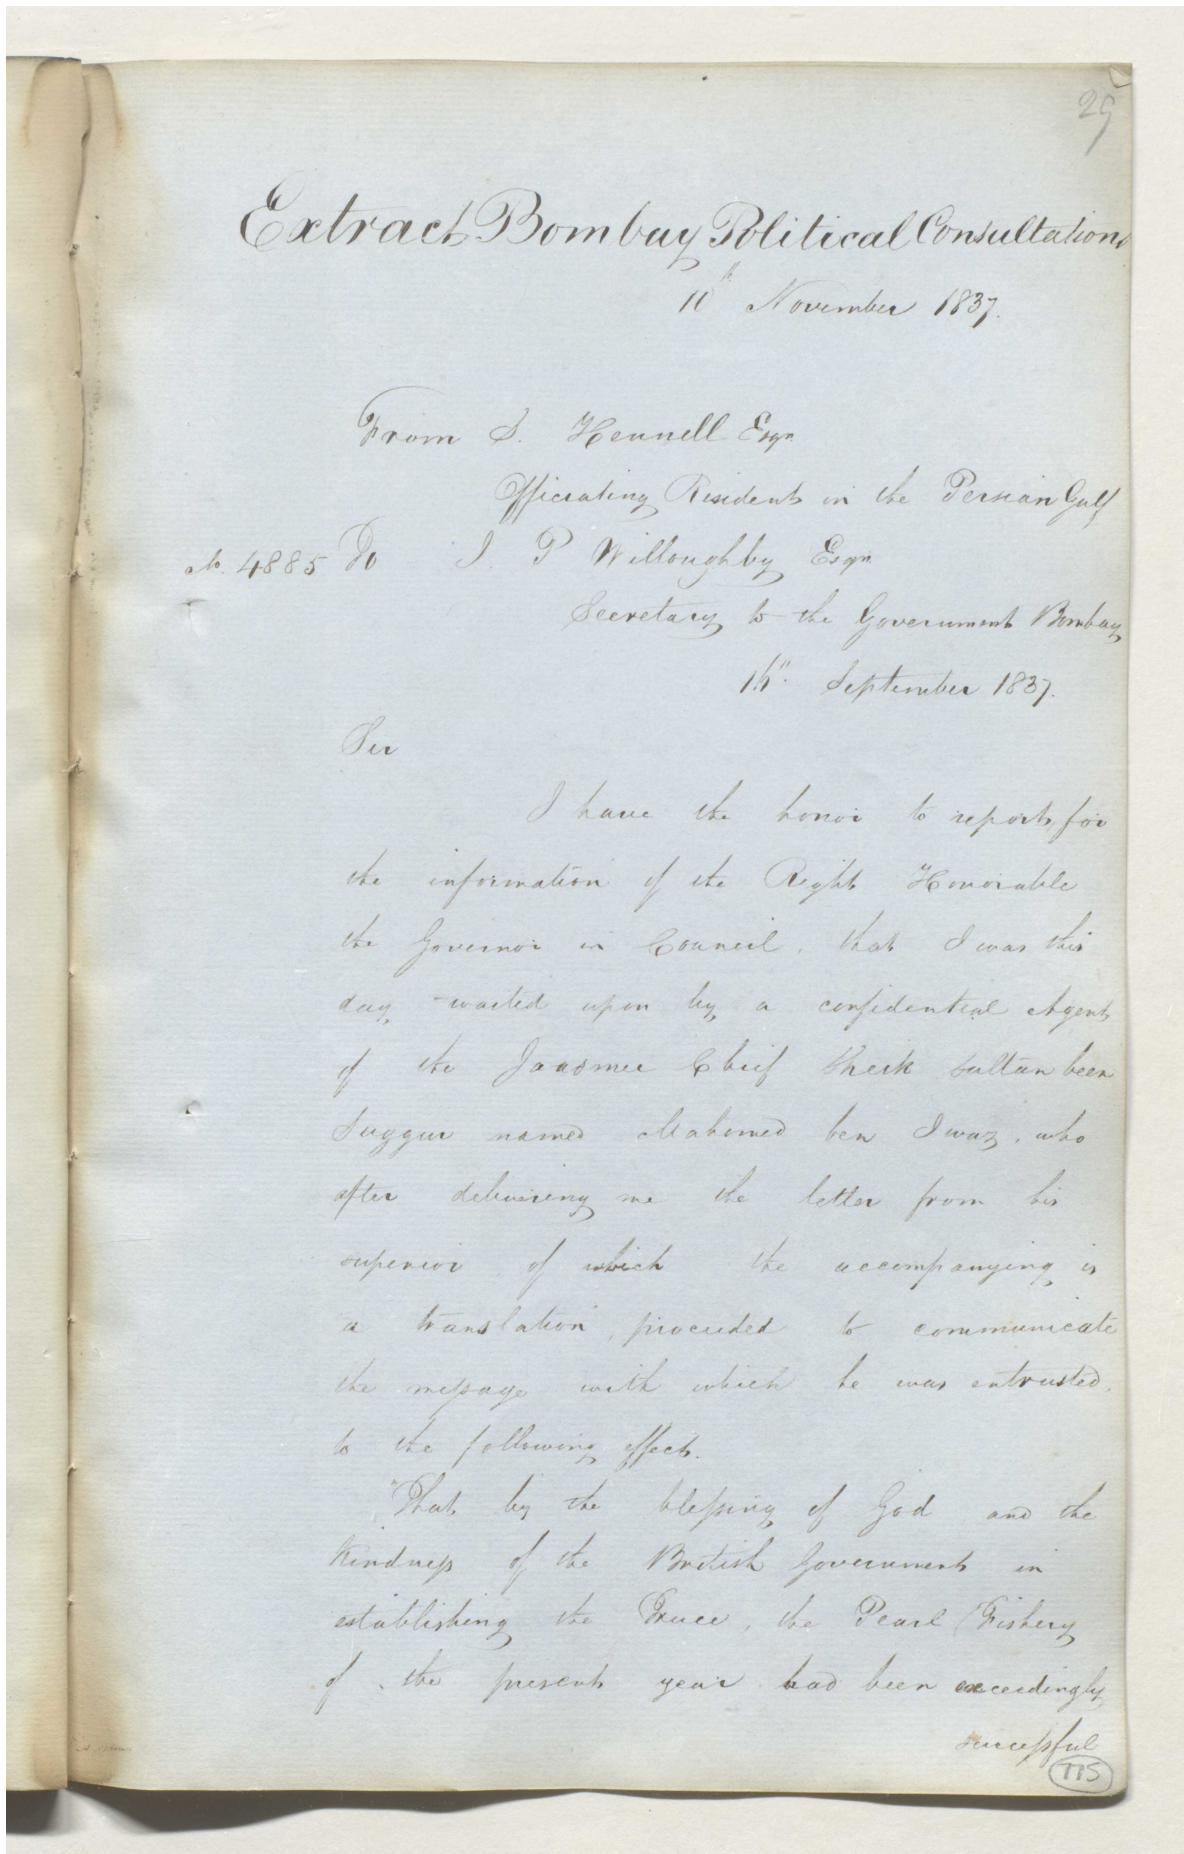 29
Extract Bombay Political Consultations
11th November 1837.
From S. Hennell Esqr
Officiating Resident in the Persian Gulf
No. 4885 To J. P Willoughby Esqr
Secretary to the Government Bombay
September 1837.
Sir
I have the honor to report for
the information of the Right Honorable
the Governor in Council, that I was this
day waited upon by a confidential Agent
of the Joasmee Chief Sheik Sultan been
Suggur named Mahomed ben Iwaz, who
after delivering me the letter from his
superior of which the accompanying is
a translation, proceeded to communicate
the message with which he was entrusted,
to the following effect.
"That by the blessing of God and the
Kindness of the British Government in
establishing the Truce, the Pearl Fishery
of the present year had been exceedingly
successful